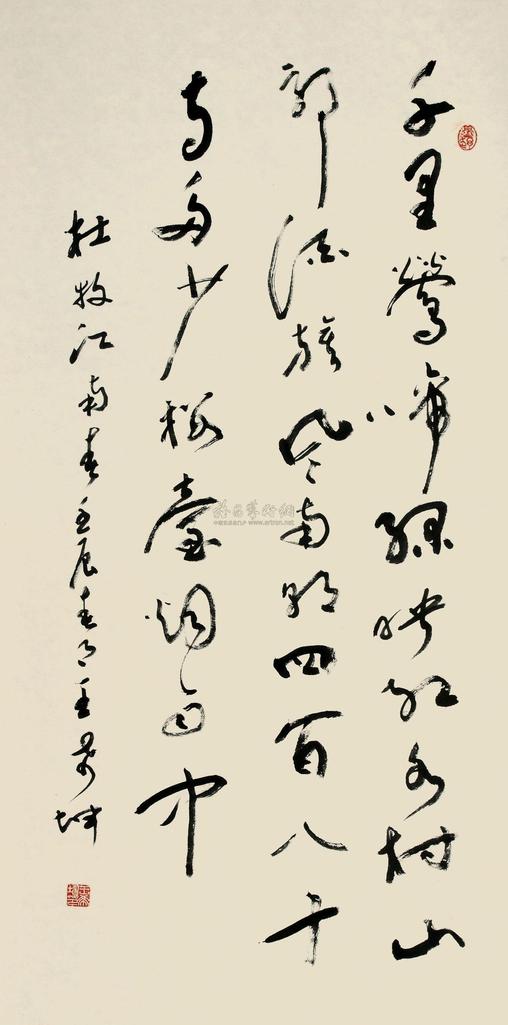 千里莺啼绿映红水村山
郭酒旗风南朝四百八十
寺多少楼台烟雨中
杜牧江南春壬辰春月王景坤